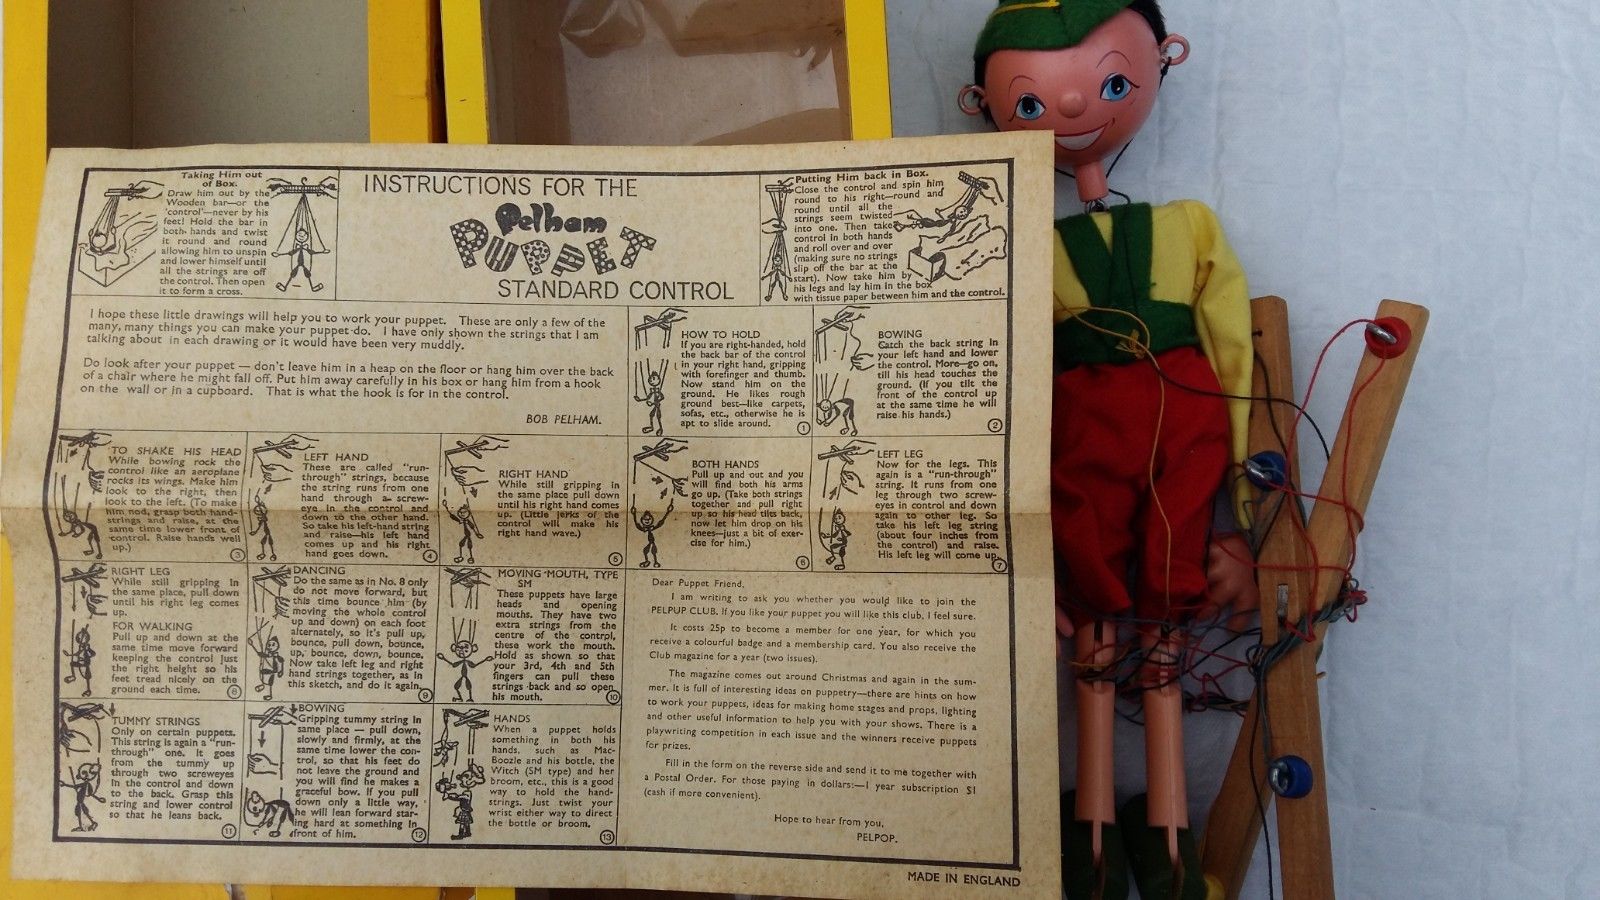 Taking Him out
of Box.
Draw him out by the
Wooden bar—or the
'control'—never by his
feet! Hold the bar in
both hands and twist
it round and round
allowing him to unspin
and lower himself until
all the strings are off
the control. Then open
it to form a cross.
INSTRUCTIONS FOR THE
Pelham
PUPPET
STANDARD CONTROL
Putting Him back in Box.
Close the control and spin him
round to his right—round and
round until all the
strings seem twisted
into one. Then take
control in both hands
and roll over and over
(making sure no strings
slip off the bar at the
start). Now take him by
his legs and lay him in the box
with tissue paper between him and the control.
I hope these little drawings will help you to work your puppet. These are only a few of the
many, many things you can make your puppet do. I have only shown the strings that I am
talking about in each drawing or it would have been very muddly.
Do look after your puppet — don't leave him in a heap on the floor or hang him over the back
of a chair where he might fall off. Put him away carefully in his box or hang him from a hook
on the wall or in a cupboard. That is what the hook is for in the control.
BOB PELHAM.
HOW TO HOLD
If you are right-handed, hold
the back bar of the control
in your right hand, gripping
with forefinger and thumb.
Now stand him on the
ground. He likes rough
ground best—like carpets,
sofas, etc., otherwise he is
apt to slide around.
1
BOWING
Catch the back string in
your left hand and lower
the control. More—go on,
till his head touches the
ground. (If you tilt the
front of the control up
at the same time he will
raise his hands.)
2
TO SHAKE HIS HEAD
While bowing rock the
control like an aeroplane
rocks its wings. Make him
look to the right, then
look to the left. (To make
him nod, grasp both hand-
strings and raise, at the
same time lower front of
control. Raise hands well
up.)
3
LEFT HAND
These are called "run-
through" strings, because
the string runs from one
hand through a screw-
eye in the control and
down to the other hand.
So take his left-hand string
and raise—his left hand
comes up and his right
hand goes down.
4
RIGHT HAND
While still gripping in
the same place pull down
until his right hand comes
up. (Little jerks of the
control will make his
right hand wave.)
5
BOTH HANDS
Pull up and out and you
will find both his arms
go up. (Take both strings
together and pull right
up so his head tilts back,
now let him drop on his
knees—just a bit of exer-
cise for him.)
6
LEFT LEG
Now for the legs. This
again is a "run-through"
string. It runs from one
leg through two screw-
eyes in control and down
again to other leg. So
take his left leg string
(about four inches from
the control) and raise.
His left leg will come up.
7
RIGHT LEG
While still gripping in
the same place, pull down
until his right leg comes
up.
FOR WALKING
Pull up and down at the
same time move forward
keeping the control just
the right height so his
feet tread nicely on the
ground each time.
8
DANCING
Do the same as in No. 8 only
do not move forward, but
this time bounce him (by
moving the whole control
up and down) on each foot
alternately, so it's pull up,
bounce, pull down, bounce,
up, bounce, down, bounce.
Now take left leg and right
hand strings together, as in
this sketch, and do it again.
9
MOVING MOUTH, TYPE
SM
These puppets have large
heads and opening
mouths. They have two
extra strings from the
centre of the control,
these work the mouth.
Hold as shown so that
your 3rd, 4th and 5th
fingers can pull these
strings back and so open
his mouth.
10
TUMMY STRINGS
Only on certain puppets.
This string is again a "run-
through" one. It goes
from the tummy up
through two screweyes
in the control and down
to the back. Grasp this
string and lower control
so that he leans back.
11
BOWING
Gripping tummy string in
same place — pull down,
slowly and firmly, at the
same time lower the con-
trol, so that his feet do
not leave the ground and
you will find he makes a
graceful bow. If you pull
down only a little way,
he will lean forward star-
ing hard at something in
front of him.
12
HANDS
When a puppet holds
something in both his
hands, such as Mac-
Boozle and his bottle, the
Witch (SM type) and her
broom, etc., this is a good
way to hold the hand-
strings. Just twist your
wrist either way to direct
the bottle or broom.
13
Dear Puppet Friend,
I am writing to ask you whether you would like to join the
PELPUP CLUB. If you like your puppet you will like this club, I feel sure.
It costs 25p to become a member for one year, for which you
receive a colourful badge and a membership card. You also receive the
Club magazine for a year (two issues).
The magazine comes out around Christmas and again in the sum-
mer. It is full of interesting ideas on puppetry—there are hints on how
to work your puppets, ideas for making home stages and props, lighting
and other useful information to help you with your shows. There is a
playwriting competition in each issue and the winners receive puppets
for prizes.
Fill in the form on the reverse side and send it to me together with
a Postal Order. For those paying in dollars:—1 year subscription $1
(cash if more convenient).
Hope to hear from you,
PELPOP.
MADE IN ENGLAND